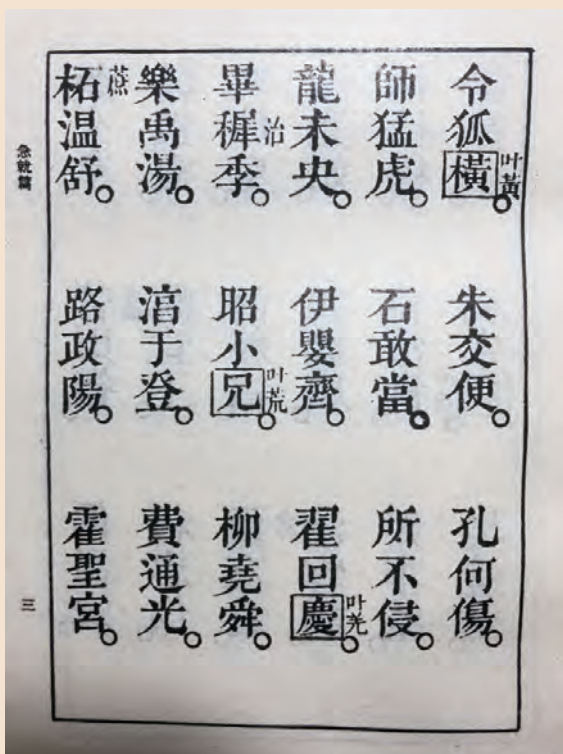 令狐橫叶黃。朱交便。孔何傷。
師猛虎。石敢當。所不侵。
龍未央。伊嬰齊。翟回慶叶羌。
畢稺治季。昭小兄叶荒。柳堯舜。
樂禹湯。湻于登。費通光。
柘蔗温舒。路政陽。霍聖宮。
急就篇
三